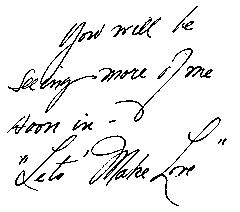 You will be
seeing more of me
soon in -
"Lets' Make Love"